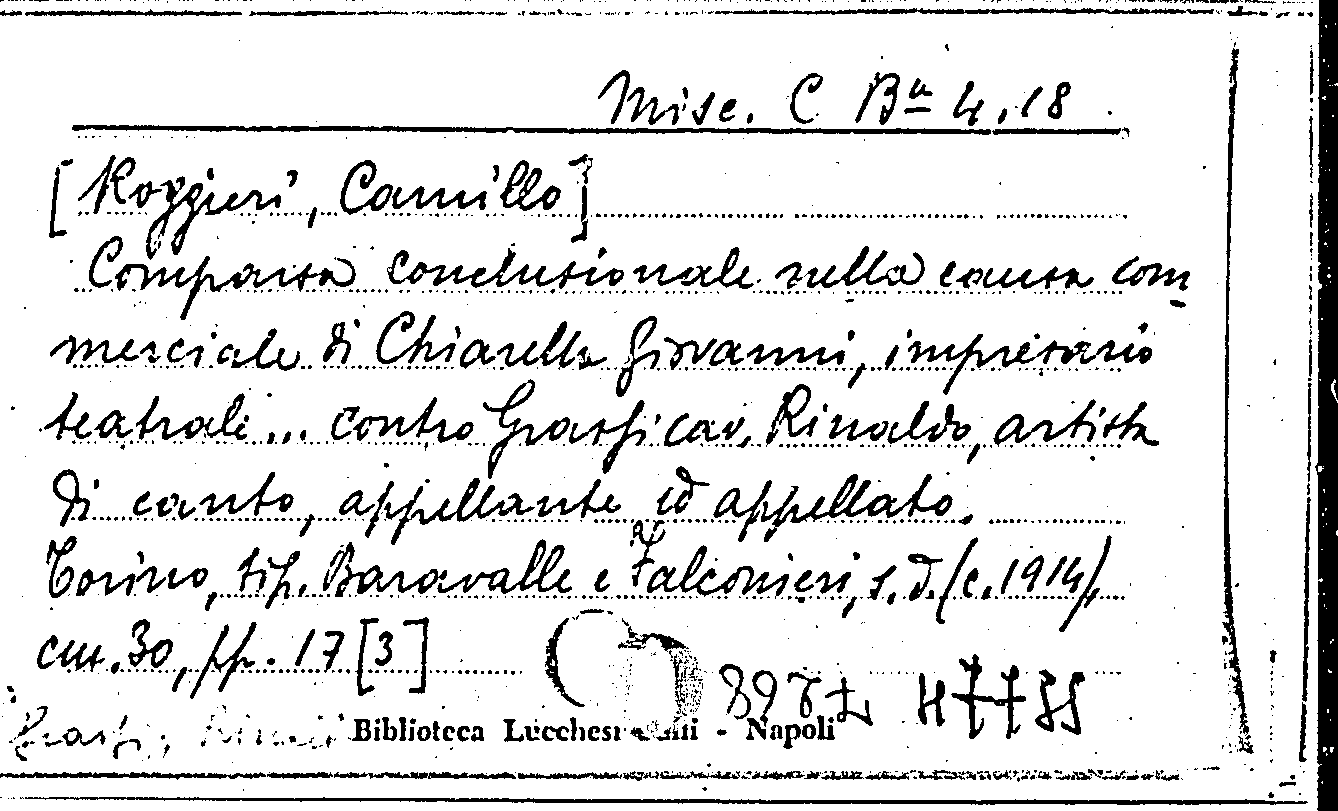 Misc. C Bª 4.18
[Roggieri, Camillo]
Comparsa conclusionale nella causa com
merciale di Chiarella Giovanni, impresario
teatrale... contro Grassi cav. Rinaldo, artista
di canto, appellante ed appellato.
Torino, tip. Baravalle e Falconieri, s.d. (c.1914),
cm.30, pp. 17 [3]
Biblioteca Lucchesi - Napoli